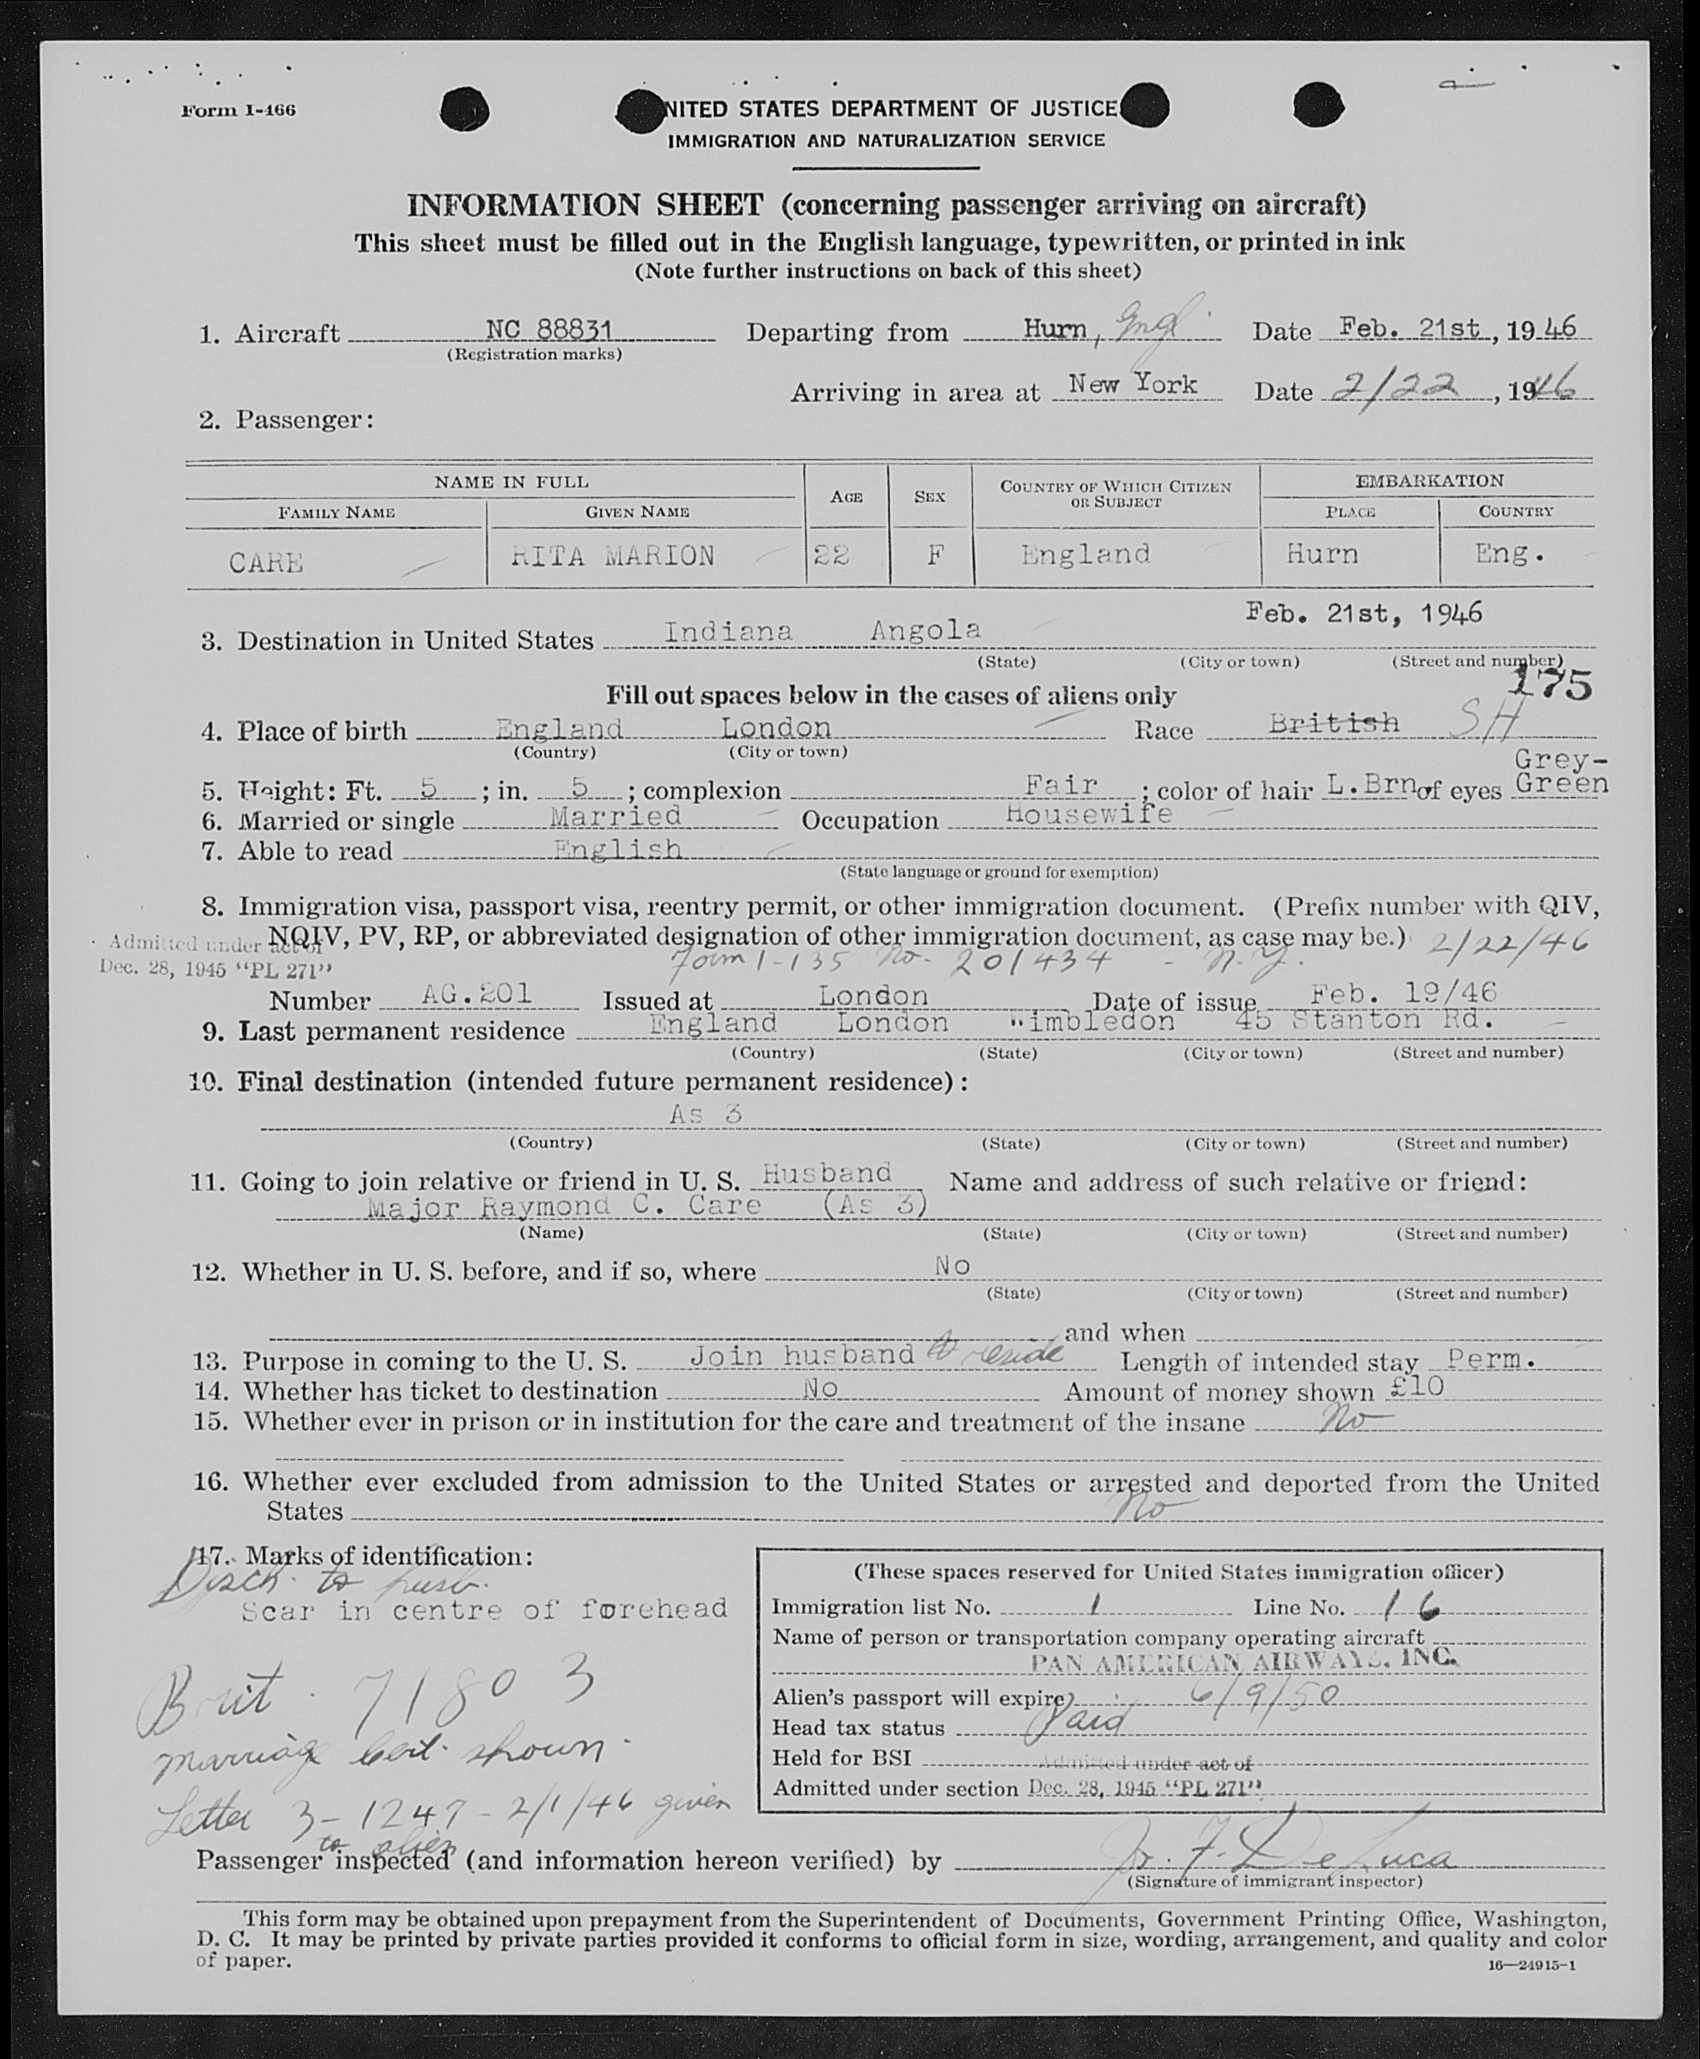 Form I-466
UNITED STATES DEPARTMENT OF JUSTICE
IMMIGRATION AND NATURALIZATION SERVICE
INFORMATION SHEET (concerning passenger arriving on aircraft)
This sheet must be filled out in the English language, typewritten, or printed in ink
(Note further instructions on back of this sheet)
1. Aircraft NC 88831 Departing from Hurn, Engl. Date Feb. 21st, 1946
(Registration marks)
Arriving in area at New York Date 2/22, 1946
2. Passenger:
NAME IN FULL AGE SEX COUNTRY OF WHICH CITIZEN OR SUBJECT EMBARKATION
FAMILY NAME GIVEN NAME PLACE COUNTRY
CARE RITA MARION 22 F England Hurn Eng.
Feb. 21st, 1946
3. Destination in United States Indiana Angola
(State) (City or town) (Street and number)
175
Fill out spaces below in the cases of aliens only
4. Place of birth England London Race British SH
(Country) (City or town)
Grey-
5. Height: Ft. 5; in. 5; complexion Fair; color of hair L.Brn. of eyes Green
6. Married or single Married Occupation Housewife
7. Able to read English
(State language or ground for exemption)
8. Immigration visa, passport visa, reentry permit, or other immigration document. (Prefix number with QIV,
NQIV, PV, RP, or abbreviated designation of other immigration document, as case may be.) 2/22/46
Admitted under act of
Dec. 28, 1945 "PL 271"
Form I-135 No. 201434 - N.Y.
Number AG.201 Issued at London Date of issue Feb. 19/46
9. Last permanent residence England London Wimbledon 45 Stanton Rd.
(Country) (State) (City or town) (Street and number)
10. Final destination (intended future permanent residence):
As 3
(Country) (State) (City or town) (Street and number)
11. Going to join relative or friend in U. S. Husband Name and address of such relative or friend:
Major Raymond C. Care (As 3)
(Name) (State) (City or town) (Street and number)
12. Whether in U. S. before, and if so, where No
(State) (City or town) (Street and number)
and when
13. Purpose in coming to the U. S. Join husband to reside Length of intended stay Perm.
14. Whether has ticket to destination No Amount of money shown £10
15. Whether ever in prison or in institution for the care and treatment of the insane No
16. Whether ever excluded from admission to the United States or arrested and deported from the United
States No
17. Marks of identification:
Disch. to husb.
Scar in centre of forehead
Brit. 71803
Marriage cert. shown.
Letter 3-1247-2/1/46 given
to alien
(These spaces reserved for United States immigration officer)
Immigration list No. 1 Line No. 16
Name of person or transportation company operating aircraft
PAN AMERICAN AIRWAYS, INC.
Alien's passport will expire 6/9/50
Head tax status Paid
Held for BSI
Admitted under act of
Admitted under section Dec. 28, 1945 "PL 271"
Passenger inspected (and information hereon verified) by Jr. F. DeLuca
(Signature of immigrant inspector)
This form may be obtained upon prepayment from the Superintendent of Documents, Government Printing Office, Washington,
D. C. It may be printed by private parties provided it conforms to official form in size, wording, arrangement, and quality and color
of paper.
16—24915-1